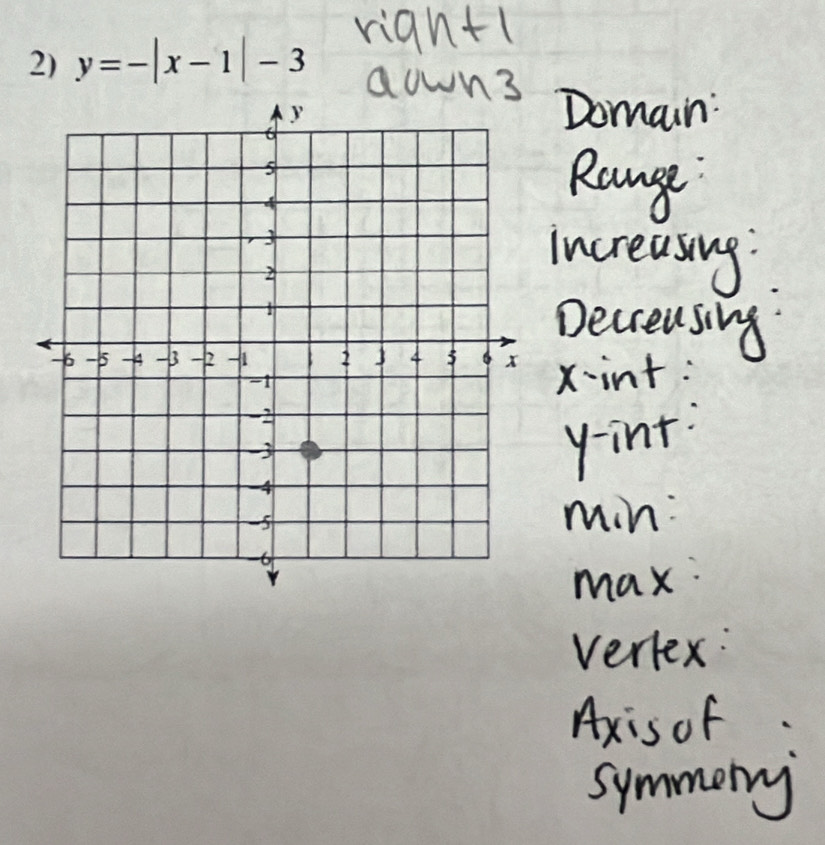 right1
2) y = -|x - 1| - 3
down3
Domain:
Range:
increasing:
Decreasing:
x-int:
y-int:
min:
max:
vertex:
Axis of
symmetry:
y
6
5
4
3
2
1
-6 -5 -4 -3 -2 -1 1 2 3 4 5 6 x
-1
-2
-3
-4
-5
-6